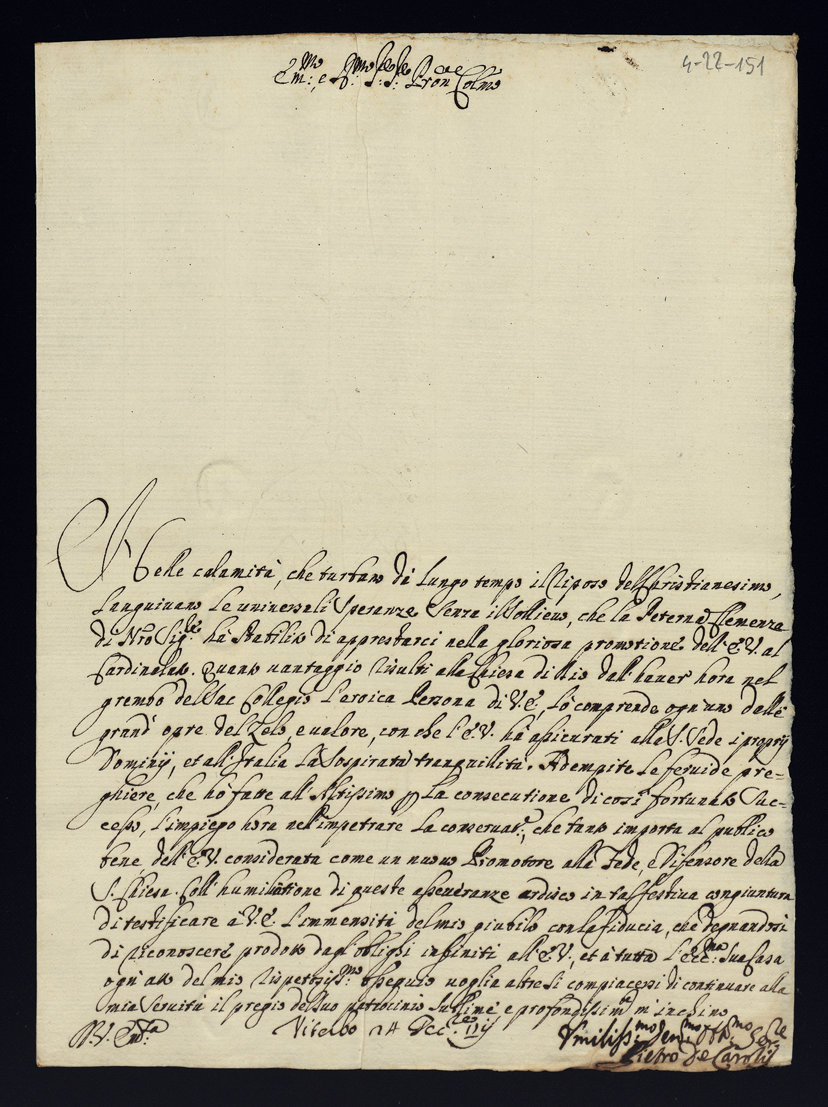 4-22-151
Em:mo, e R:mo Sig:re Sig:re Pron Colmo
Nelle calamità, che turbano dà lungo tempo il riposo dell'Christianesimo,
languivano le universali speranze senza il sollievo, che la Paterna Clemenza
di Nro Sig:re hà stabilito di apprestarci nella gloriosa promotione dell'E.V. al
Cardinalato. Quanto vantaggio risulti alla Chiesa di Dio dall'haver hora nel
grembo del Sac Collegio l'eroica Persona di V.E., lo comprende ogn'uno dalle
grand'opre del Zelo, e valore, con che l'E.V. hà assicurati alla S. Sede i proprij
Dominij, et all'Italia la sospirata tranquilità. Adempite le fervide pre=
ghiere, che hò fatte all'Altissimo p la consecutione di così fortunato suc=
cesso, l'impiego hora nell'impetrare la conservat:e, che tanto importa al publico
bene dell'E.V. considerata come un nuovo Promotore alla Fede, e Difensore della
S. Chiesa. Coll'humiliatione di queste asseveranze ardisco in tal festiva congiuntura
di testificare à V.E. l'immensità del mio giubilo con la fiducia, che degnandosi
di riconoscere prodotto dagl'oblighi infiniti all'E.V., et à tutta l'Ecc:ma Sua Casa
ogn'atto del mio rispetosiss:mo ossequio voglia altresì compiacersi di continuare alla
mia servitù il pregio del suo patrocinio sublime e profondissim:te m'inchino
Viterbo 24 Dec:re
Umiliss:mo Dev:mo
Pietro de Carolis